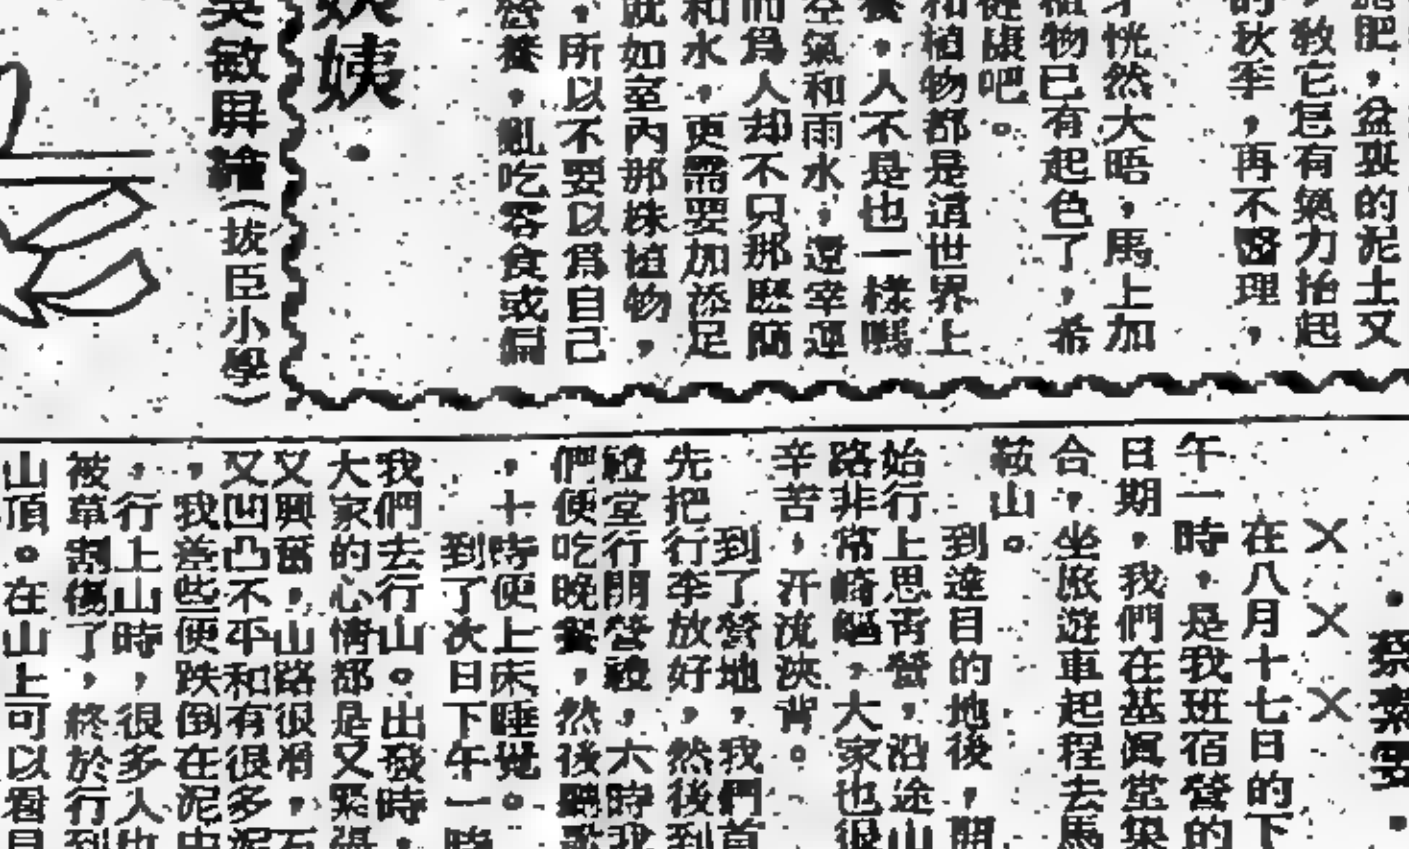 施肥，盆裁的泥土又
，教它怎有氣力抬起
的秋季，再不醫理，
才恍然大晤，馬上加
植物已有起色了，希
健康吧。
和植物都是這世界上
養，人不是也一樣嗎
空氣和雨水，還幸運
而爲人却不只那麽簡
和水，更需要加添足
就如室內那株植物，
，所以不要以爲自己
營養，亂吃零食或偏
姨姨
吳敏屏繪（拔臣小學）
• 蔡素雯 •
×××
在八月十七日的下
午一時，是我班宿營的
日期，我們在基眞堂集
合，坐旅遊車起程去馬
鞍山。
到達目的地後，開
始行上思靑營，沿途山
路非常崎嶇，大家也很
辛苦，汗流浹背。
到了營地，我們首
先把行李放好，然後到
禮堂行開營禮，六時我
們便吃晚餐，然後
，十時便上床睡覺。
到了次日下午一時
我們去行山。出發時，
大家的心情都是又緊張
又興奮，山路很滑，石
又凹凸不平和有很多泥
，我差些便跌倒在泥中
，行上山時，很多人也
被草割傷了，終於行到
山頂。在山上可以看見